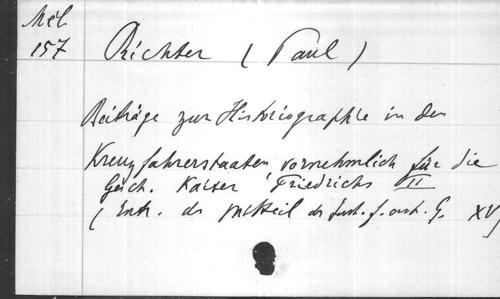 Mél. Richter (Paul)
157
Beiträge zur Historiographie in den
Kreuzfahrerstaaten, vornehmlich für die
Gesch. Kaiser Friedrichs II
(Extr. des Mitteil des Inst. f. oest. G. XV)